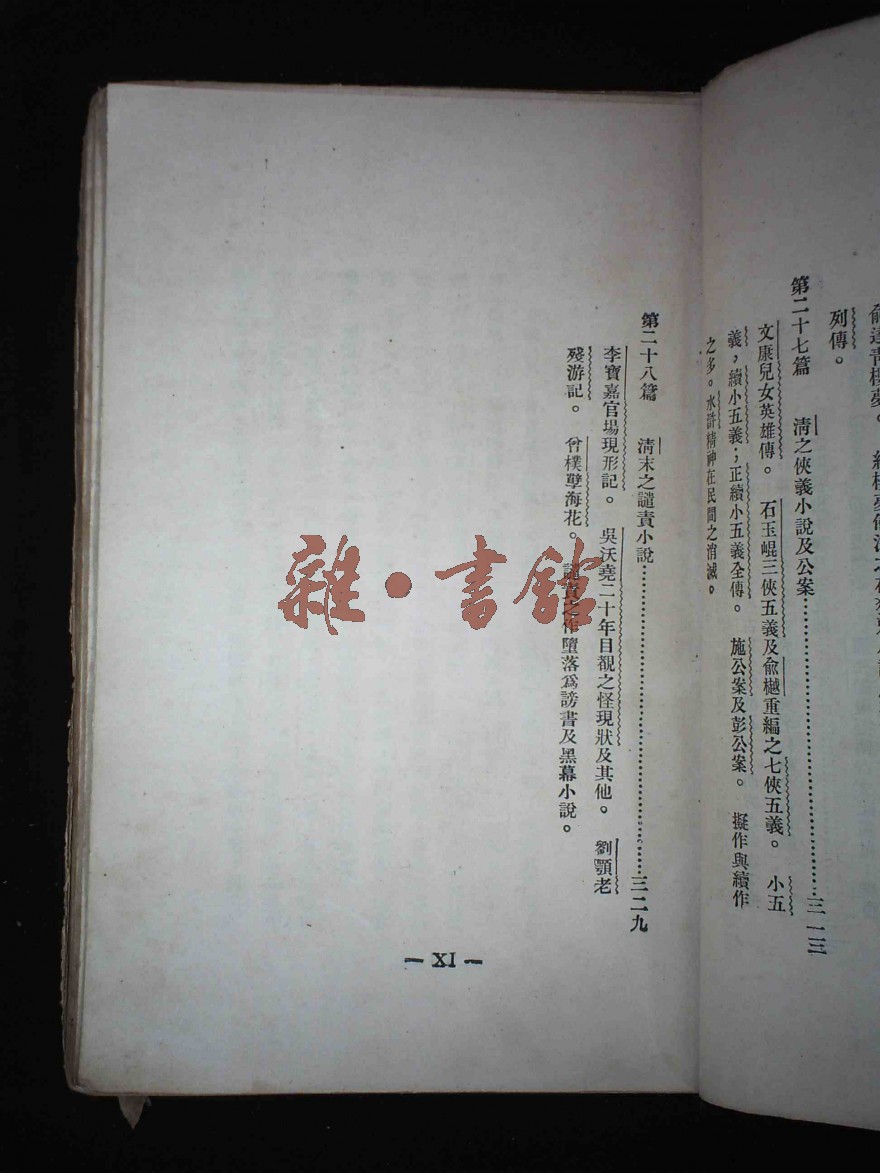 列傳。
第二十七篇 清之俠義小說及公案……三一三
文康兒女英雄傳。 石玉崐三俠五義及俞樾重編之七俠五義。 小五
義，續小五義；正續小五義全傳。 施公案及彭公案。 擬作與續作
之多。水滸精神在民間之消滅。
第二十八篇 清末之譴責小說……三二九
李寶嘉官場現形記。 吳沃堯二十年目覩之怪現狀及其他。 劉顎老
殘游記。 曾樸孽海花。 譴責之作墮落爲謗書及黑幕小說。
— XI —
雜·書館